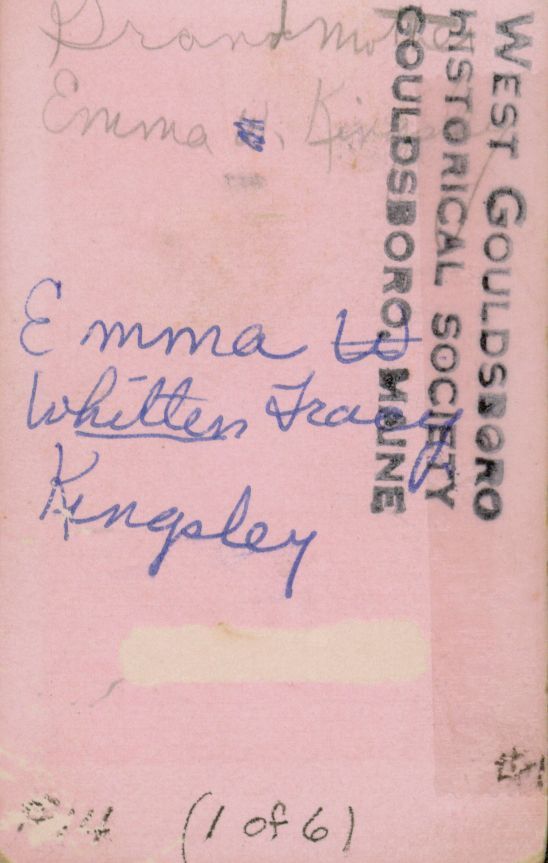 Grandmother
Emma W. Kingsley
Emma W
Whitten Tracy
Kingsley
WEST GOULDSBORO
HISTORICAL SOCIETY
GOULDSBORO, MAINE
(1 of 6)